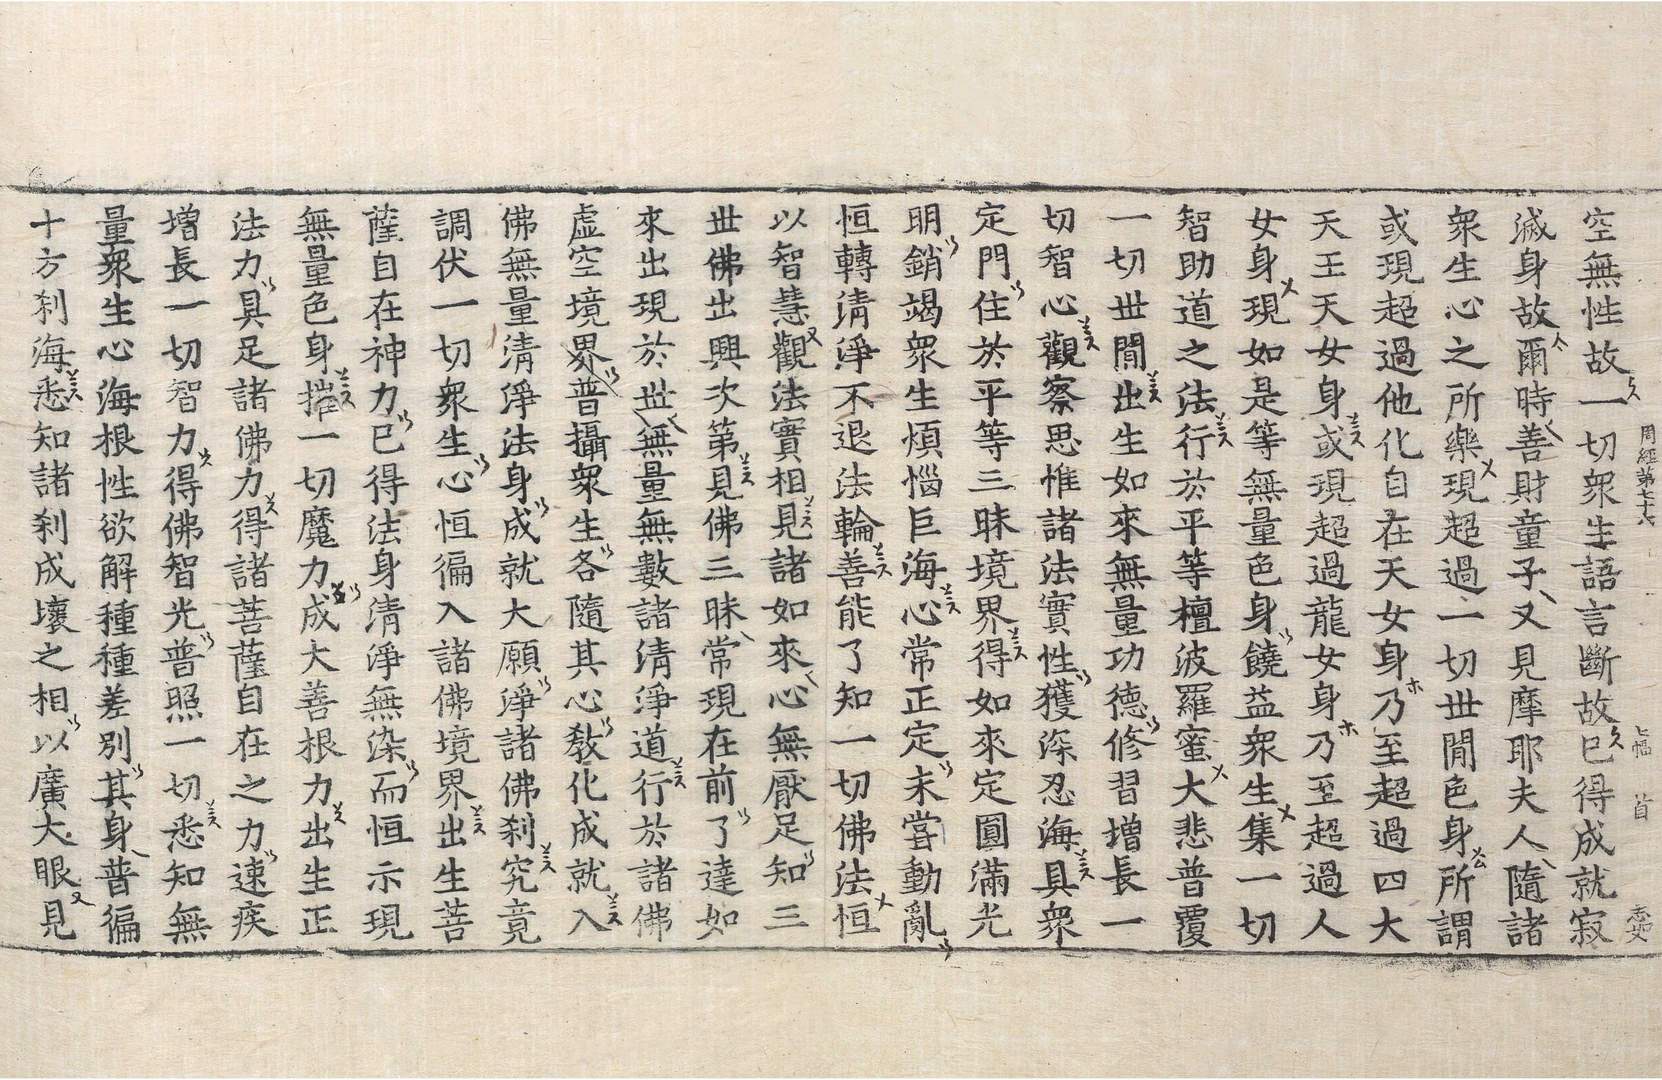 空無性故一切衆生語言斷故已得成就寂
滅身故爾時善財童子又見摩耶夫人隨諸
衆生心之所樂現超過一切世閒色身所謂
或現超過他化自在天女身乃至超過四大
天王天女身或現超過龍女身乃至超過人
女身現如是等無量色身饒益衆生集一切
智助道之法行於平等檀波羅蜜大悲普覆
一切世閒出生如來無量功德修習增長一
切智心觀察思惟諸法實性獲深忍海具衆
定門住於平等三昧境界得如來定圓滿光
明銷竭衆生煩惱巨海心常正定未嘗動亂
恒轉清淨不退法輪善能了知一切佛法恒
以智慧觀法實相見諸如來心無厭足知三
世佛出興次第見佛三昧常現在前了達如
來出現於世無量無數諸清淨道行於諸佛
虛空境界普攝衆生各隨其心教化成就入
佛無量清淨法身成就大願淨諸佛刹究竟
調伏一切衆生心恒徧入諸佛境界出生菩
薩自在神力已得法身清淨無染而恒示現
無量色身摧一切魔力成大善根力出生正
法力具足諸佛力得諸菩薩自在之力速疾
增長一切智力得佛智光普照一切悉知無
量衆生心海根性欲解種種差別其身普徧
十方刹海悉知諸刹成壞之相以廣大眼見